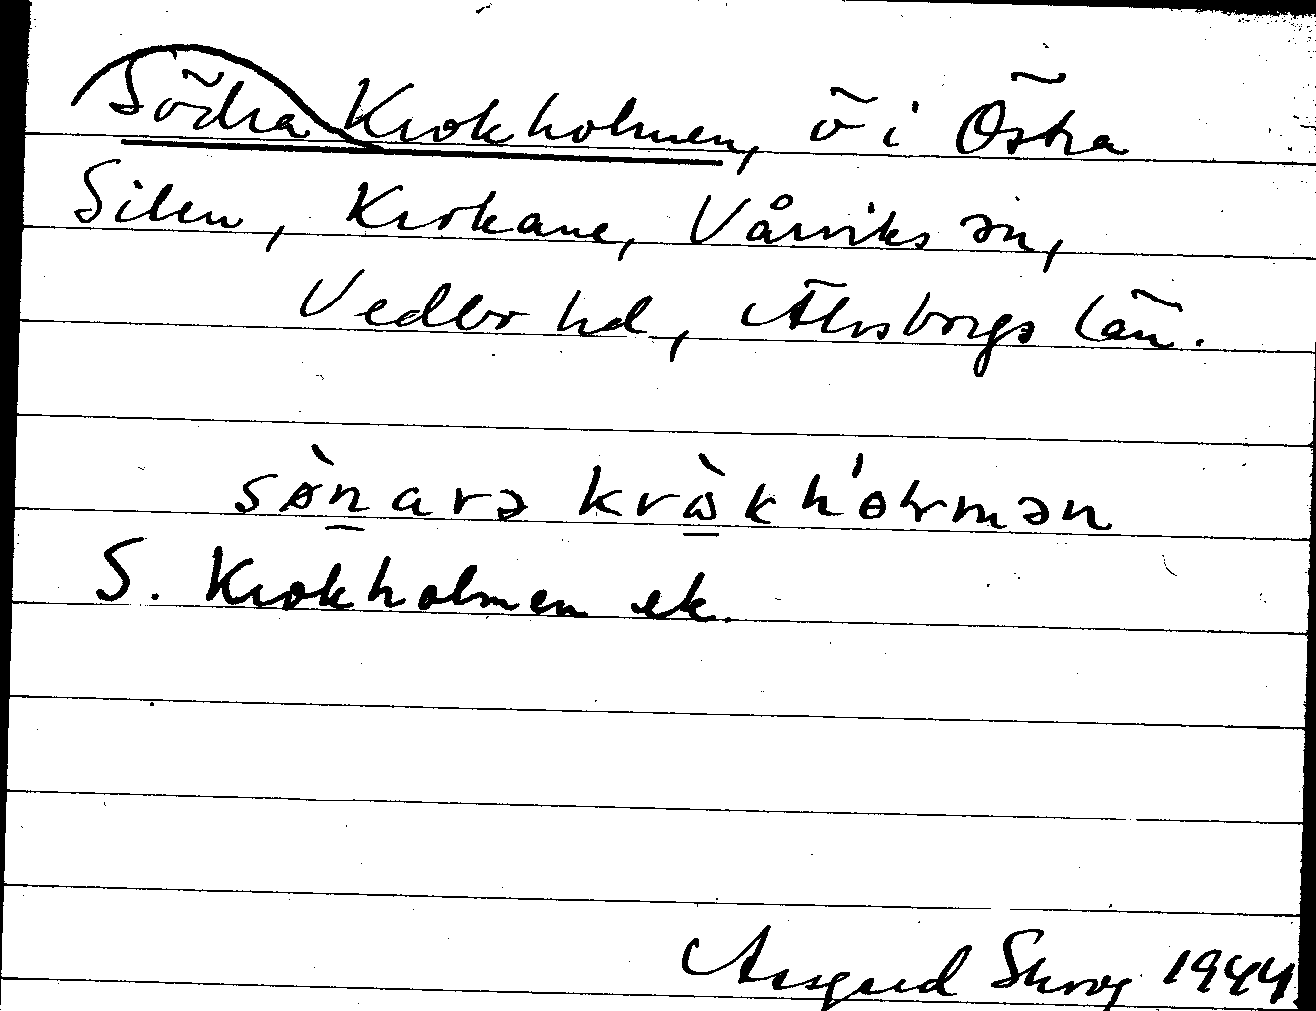 Södra Krokholmen, ö i Östra
Silen, Krokane, Vårviks sn,
Vedbo hd, Älvsborgs län.
sǿ̀narə krɷ̀kho̍lmən
S. Krokholmen ek.
Skrog 1944.